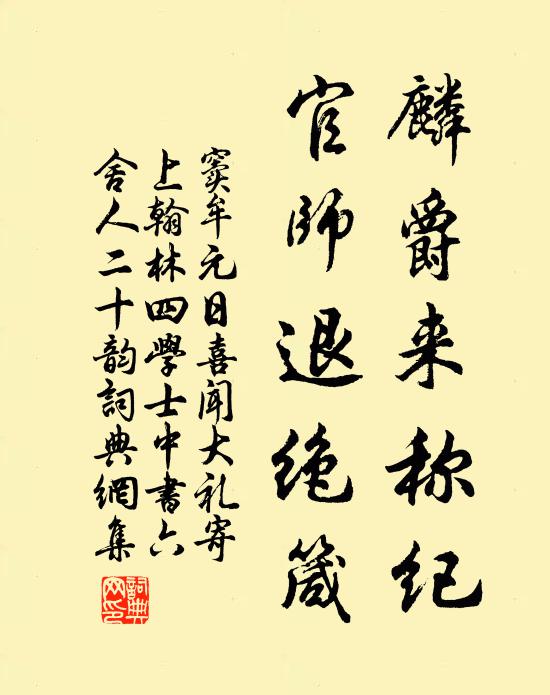 麟爵来称纪
官师退绝箴
窦牟元日喜闻大礼寄
上翰林四學士中書六
舍人二十韵詞典網集
詞典网印